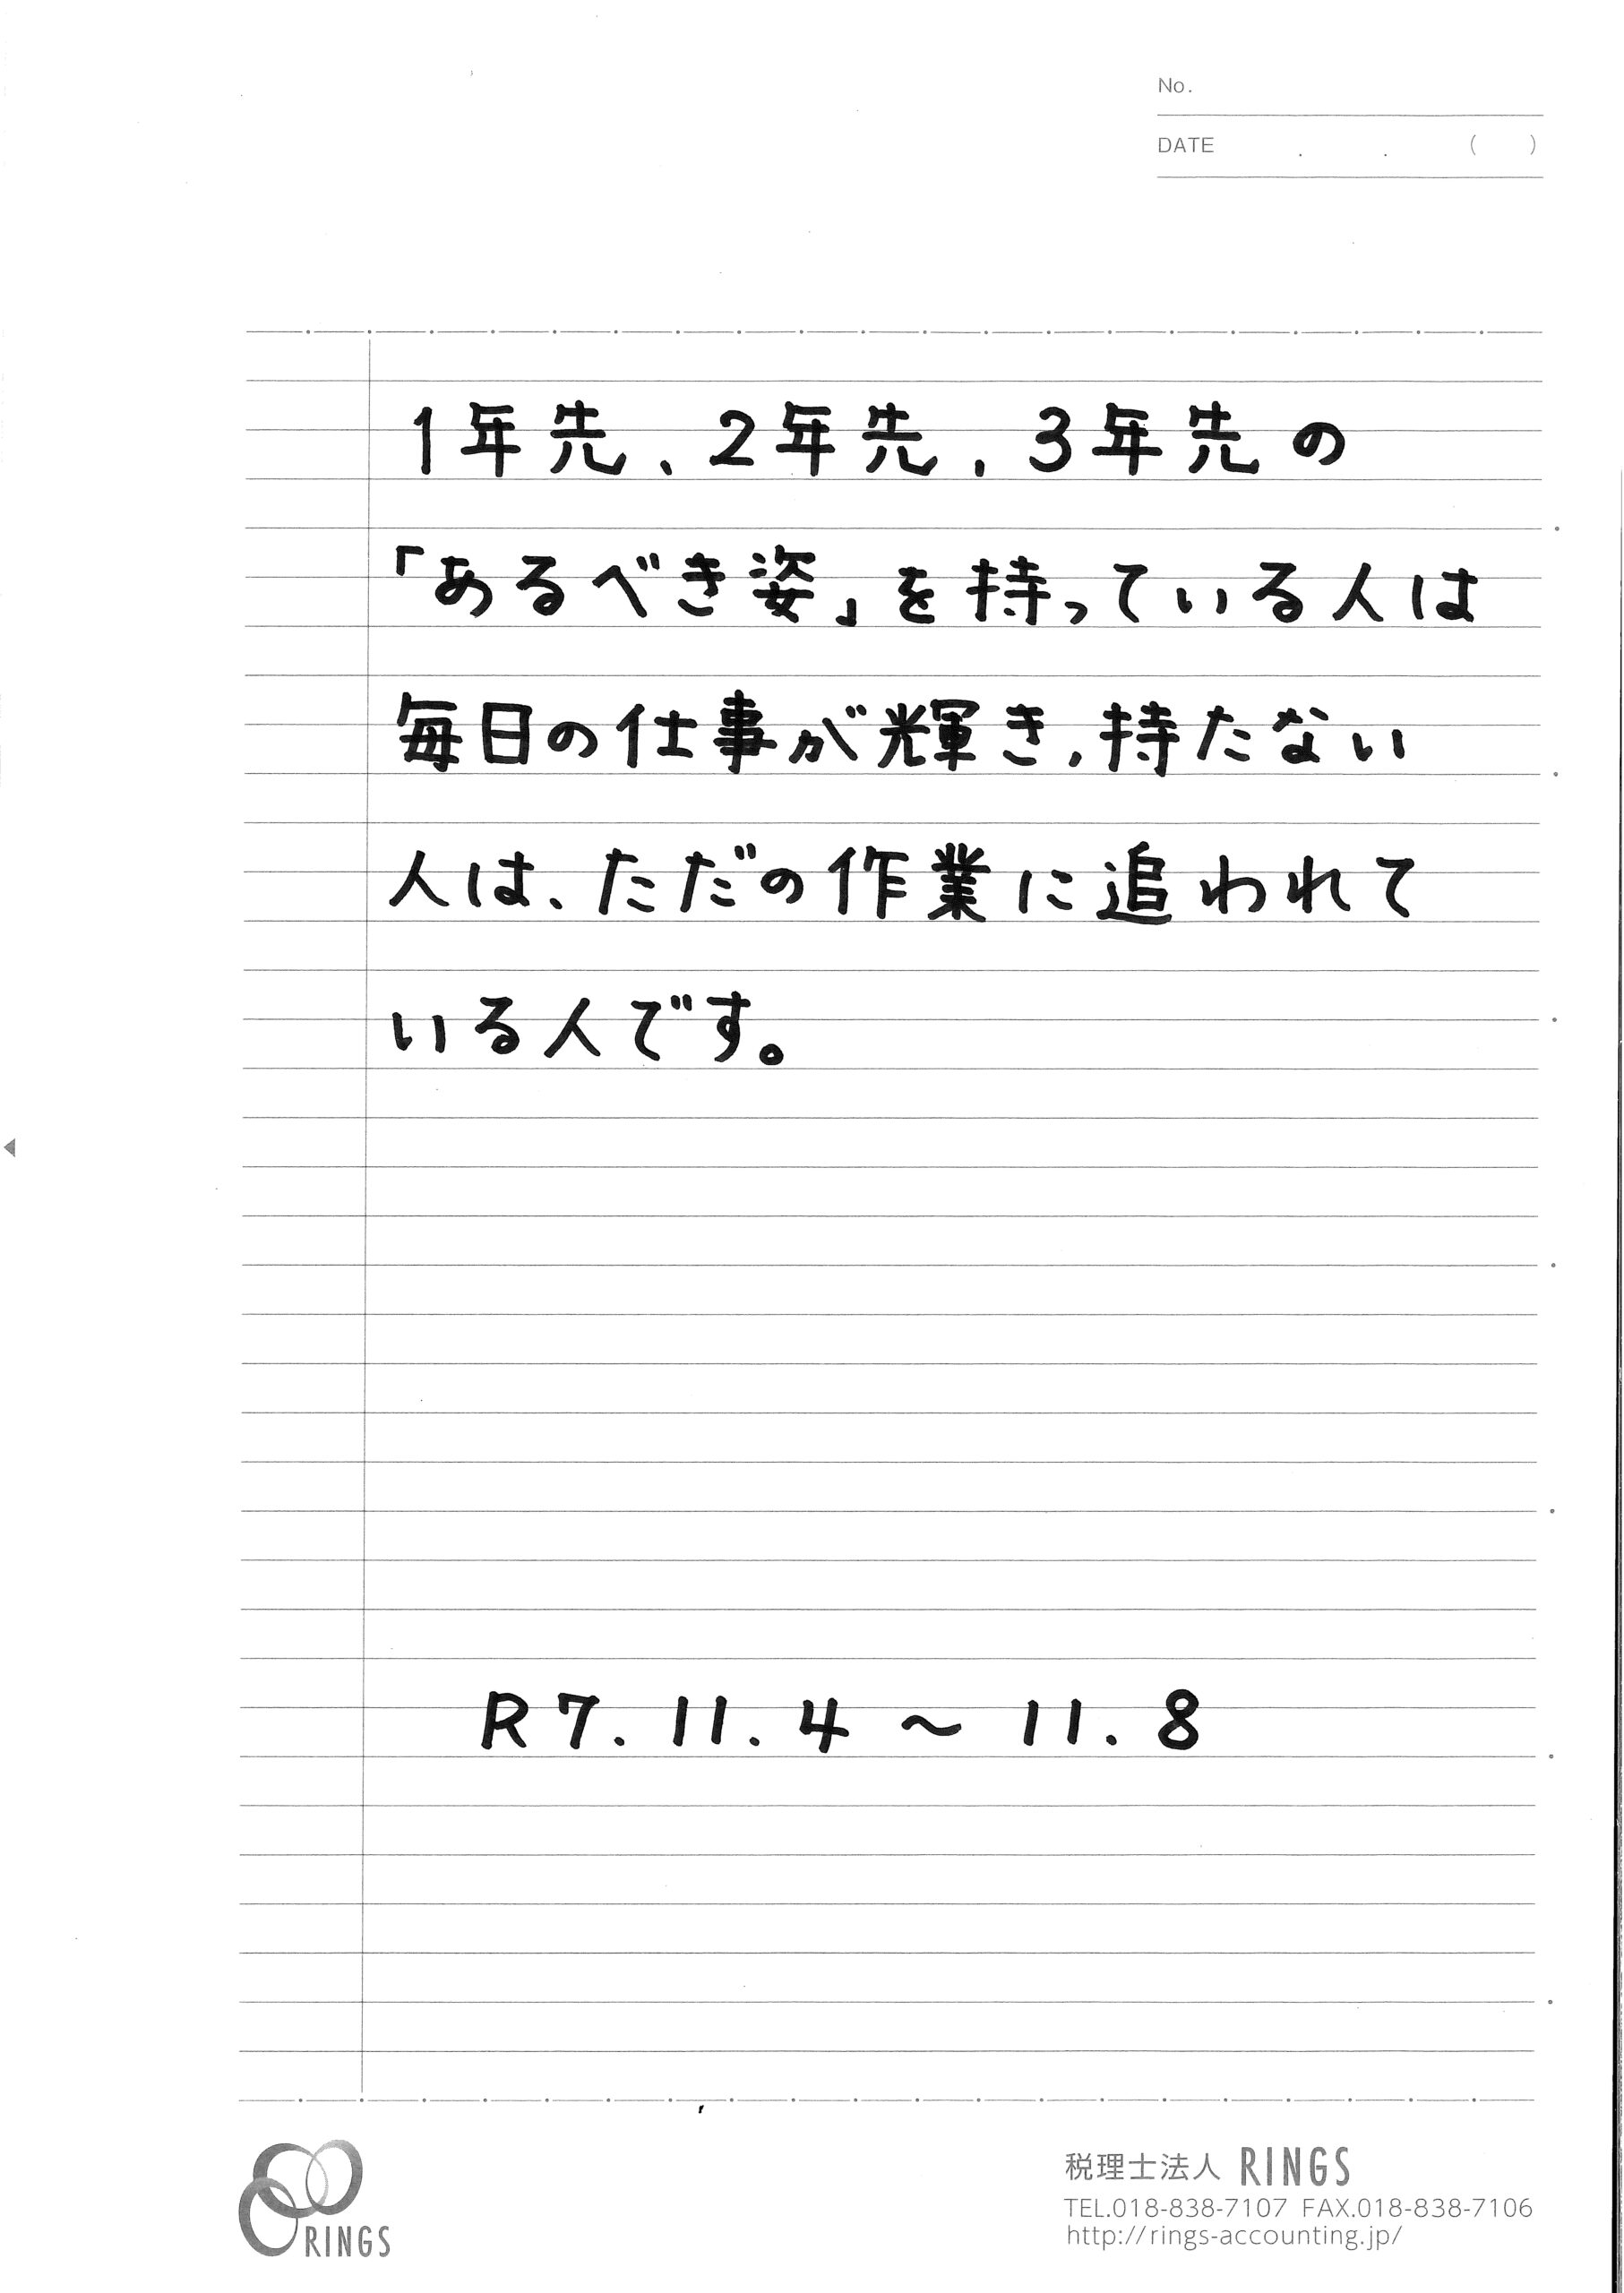 No.
DATE . . ( )
1年先、2年先、3年先の
「あるべき姿」を持っている人は
毎日の仕事が輝き、持たない
人は、ただの作業に追われて
いる人です。
R7.11.4～11.8
RINGS
税理士法人 RINGS
TEL.018-838-7107 FAX.018-838-7106
http://rings-accounting.jp/